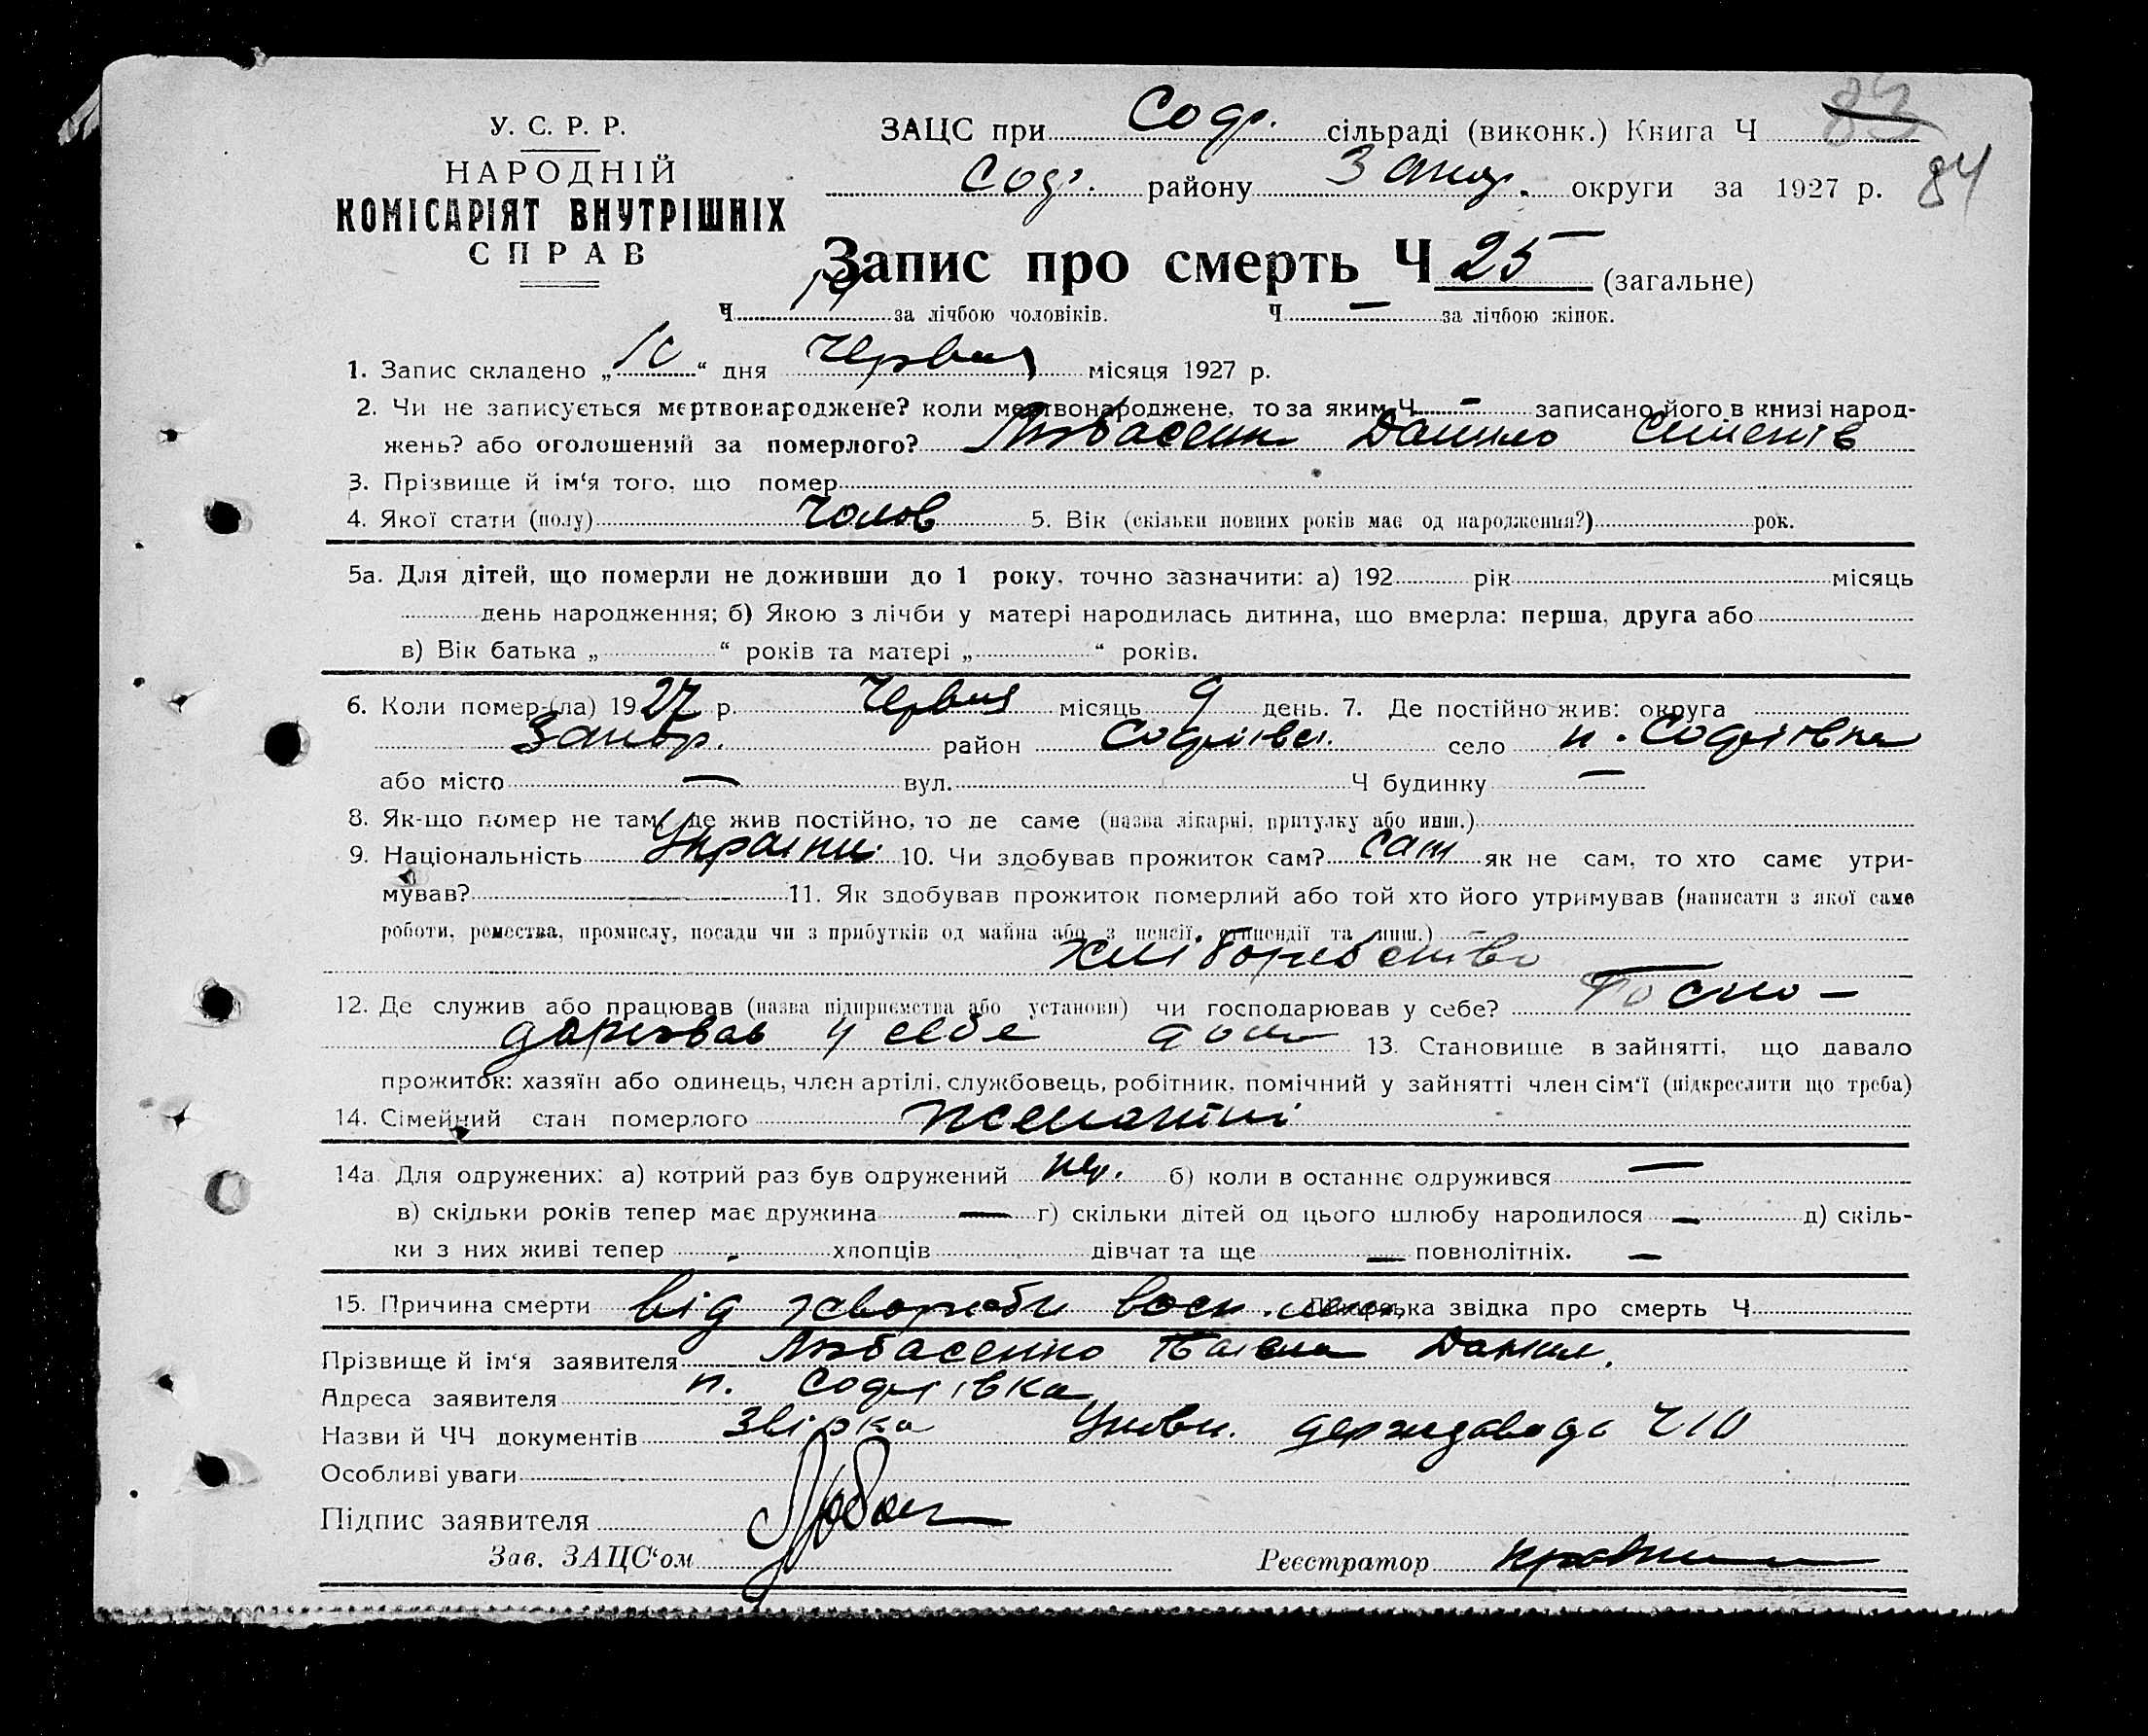 У. С. Р. Р.
НАРОДНІЙ
КОМІСАРІЯТ ВНУТРІШНІХ
СПРАВ
ЗАЦС при Соф. сільраді (виконк.) Книга Ч 83
Соф. району Запор. округи за 1927 р. 84
Запис про смерть Ч 25 (загальне)
Ч 14 за лічбою чоловіків. Ч — за лічбою жінок.
1. Запис складено „10“ дня Червня місяця 1927 р.
2. Чи не записується мертвонароджене? коли мертвонароджене, то за яким Ч - записано його в книзі народ-
жень? або оголошений за померлого? Любасенко Данило
3. Прізвище й ім‘я того, що помер
4. Якої стати (полу) Чолов 5. Вік (скільки повних років має од народження?) рок.
5а. Для дітей, що померли не доживши до 1 року, точно зазначити: а) 192 рік місяць
день народження; б) Якою з лічби у матері народилась дитина, що вмерла: перша, друга або
в) Вік батька „ “ років та матері „ “ років.
6. Коли помер-(ла) 1927 р. Червня місяць 9 день. 7. Де постійно жив: округа
Запор. район Софіївсь. село н. Софіївка
або місто — вул. Ч будинку —
8. Як-що помер не там, де жив постійно, то де саме (назва лікарні, притулку або инш.)
9. Національність 10. Чи здобував прожиток сам? сам як не сам, то хто саме утри-
мував? 11. Як здобував прожиток померлий або той хто його утримував (написати з якої саме
роботи, ремества, промислу, посади чи з прибутків од майна або з пенсії, стипендії та инш.)
хліборобство
12. Де служив або працював (назва підприємства або установи) чи господарював у себе? Госпо-
дарював у себе дома 13. Становище в зайнятті, що давало
прожиток: хазяїн або одинець, член артілі, службовець, робітник, помічний у зайнятті член сім‘ї (підкреслити що треба)
14. Сімейний стан померлого женатий
14а Для одружених: а) котрий раз був одружений пер. б) коли в останнє одружився —
в) скільки років тепер має дружина — г) скільки дітей од цього шлюбу народилося — д) скіль-
ки з них живі тепер - хлопців дівчат та ще — повнолітніх. —
15. Причина смерти від хвороби Лікарська звідка про смерть Ч
Прізвище й ім‘я заявителя Любасенко Данил.
Адреса заявителя н. Софіївка
Назви й ЧЧ документів Ч 10
Особливі уваги
Підпис заявителя
Зав. ЗАЦС‘ом Реєстратор